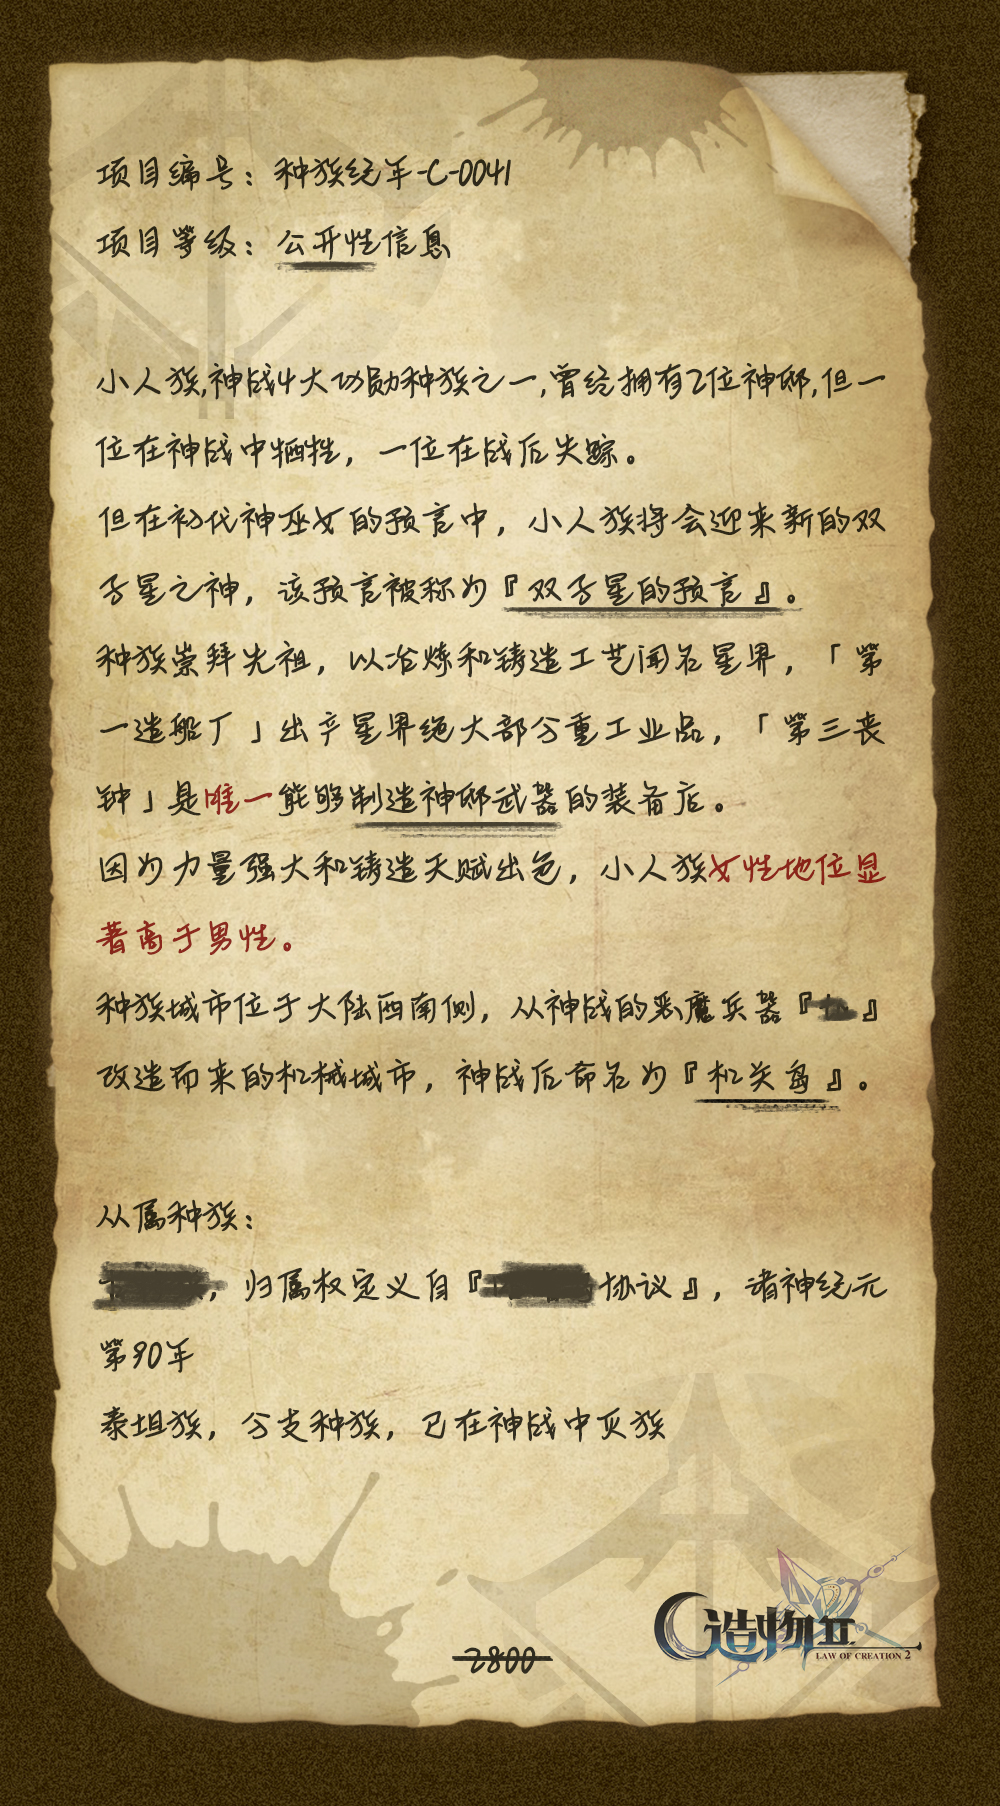 项目编号：种族纪年-C-0041
项目等级：公开性信息
小人族,神战4大功勋种族之一,曾经拥有2位神邸,但一
位在神战中牺牲，一位在战后失踪。
但在初代神巫女的预言中，小人族将会迎来新的双
子星之神，该预言被称为『双子星的预言』。
种族崇拜先祖，以冶炼和铸造工艺闻名星界，「第
一造船厂」出产星界绝大部分重工业品，「第三丧
钟」是唯一能够制造神邸武器的装备店。
因为力量强大和铸造天赋出色，小人族女性地位显
著高于男性。
种族城市位于大陆西南侧，从神战的恶魔兵器『』
改造而来的机械城市，神战后命名为『机关岛』。
从属种族：
，归属权定义自『协议』，诸神纪元
第90年
泰坦族，分支种族，已在神战中灭族
2800
造物II
LAW OF CREATION 2